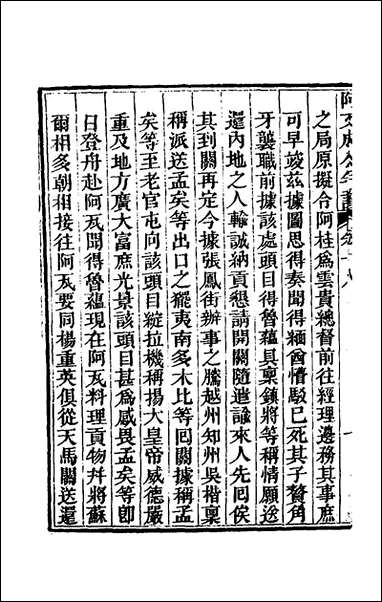 之局原擬合阿桂為雲貴總督前往經理邊務其事庶
可早竣茲據圖思得奏聞得緬酋懵駁已死其子贅角
牙襲職前據該處頭目得魯蘊具稟鎮將等稱情願送
還內地之人輸誠納貢懇請開關隨遣諭來人先囘俟
其到關再定今據張鳳街辦事之騰越州知州吳楷稟
稱派送孟矣等出口之擺夷南多木比等囘關據稱孟
矣等至老官屯向該頭目綻拉機稱揚大皇帝威德嚴
重及地方廣大富庶光景該頭目甚為感畏孟矣等卽
日登舟赴阿瓦聞得魯蘊現在阿瓦料理貢物幷將蘇
爾相多朝相接往阿瓦要同楊重英俱從天馬關送還